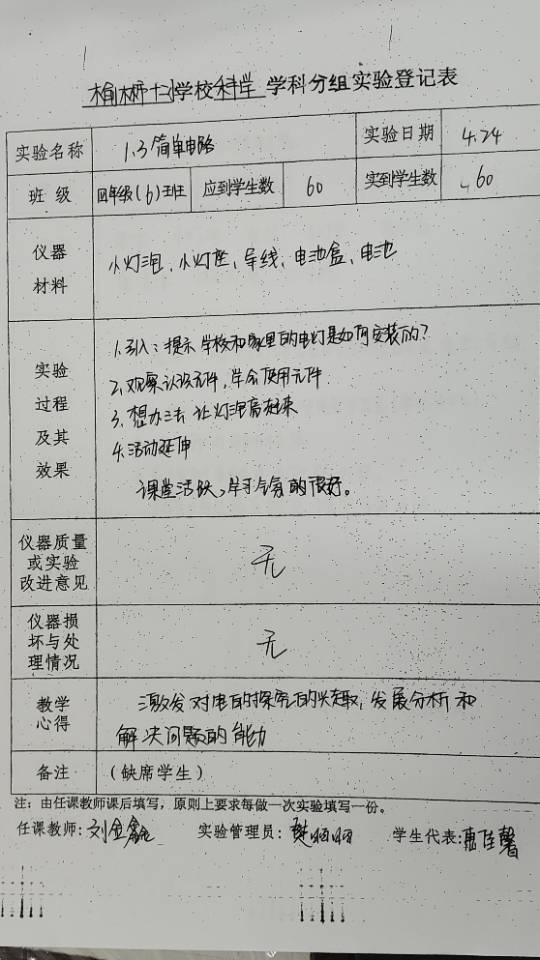 榆林十二小学校科学学科分组实验登记表
实验名称 1.3简单电路 实验日期 4.24
班 级 四年级(6)班 应到学生数 60 实到学生数 60
仪器
材料
小灯泡、小灯座、导线、电池盒、电池
实验
过程
及其
效果
1.引入:提示学校和家里的电灯是如何安装的?
2.观察认识元件,学会使用元件
3.想办法让灯泡亮起来
4.活动延伸
课堂活跃,学习的很好。
仪器质量
或实验
改进意见
无
仪器损
坏与处
理情况
无
教学
心得
激发对电的探究的兴趣,发展分析和
解决问题的能力
备注 (缺席学生)
注:由任课教师课后填写,原则上要求每做一次实验填写一份。
任课教师:刘金鑫 实验管理员: 学生代表: